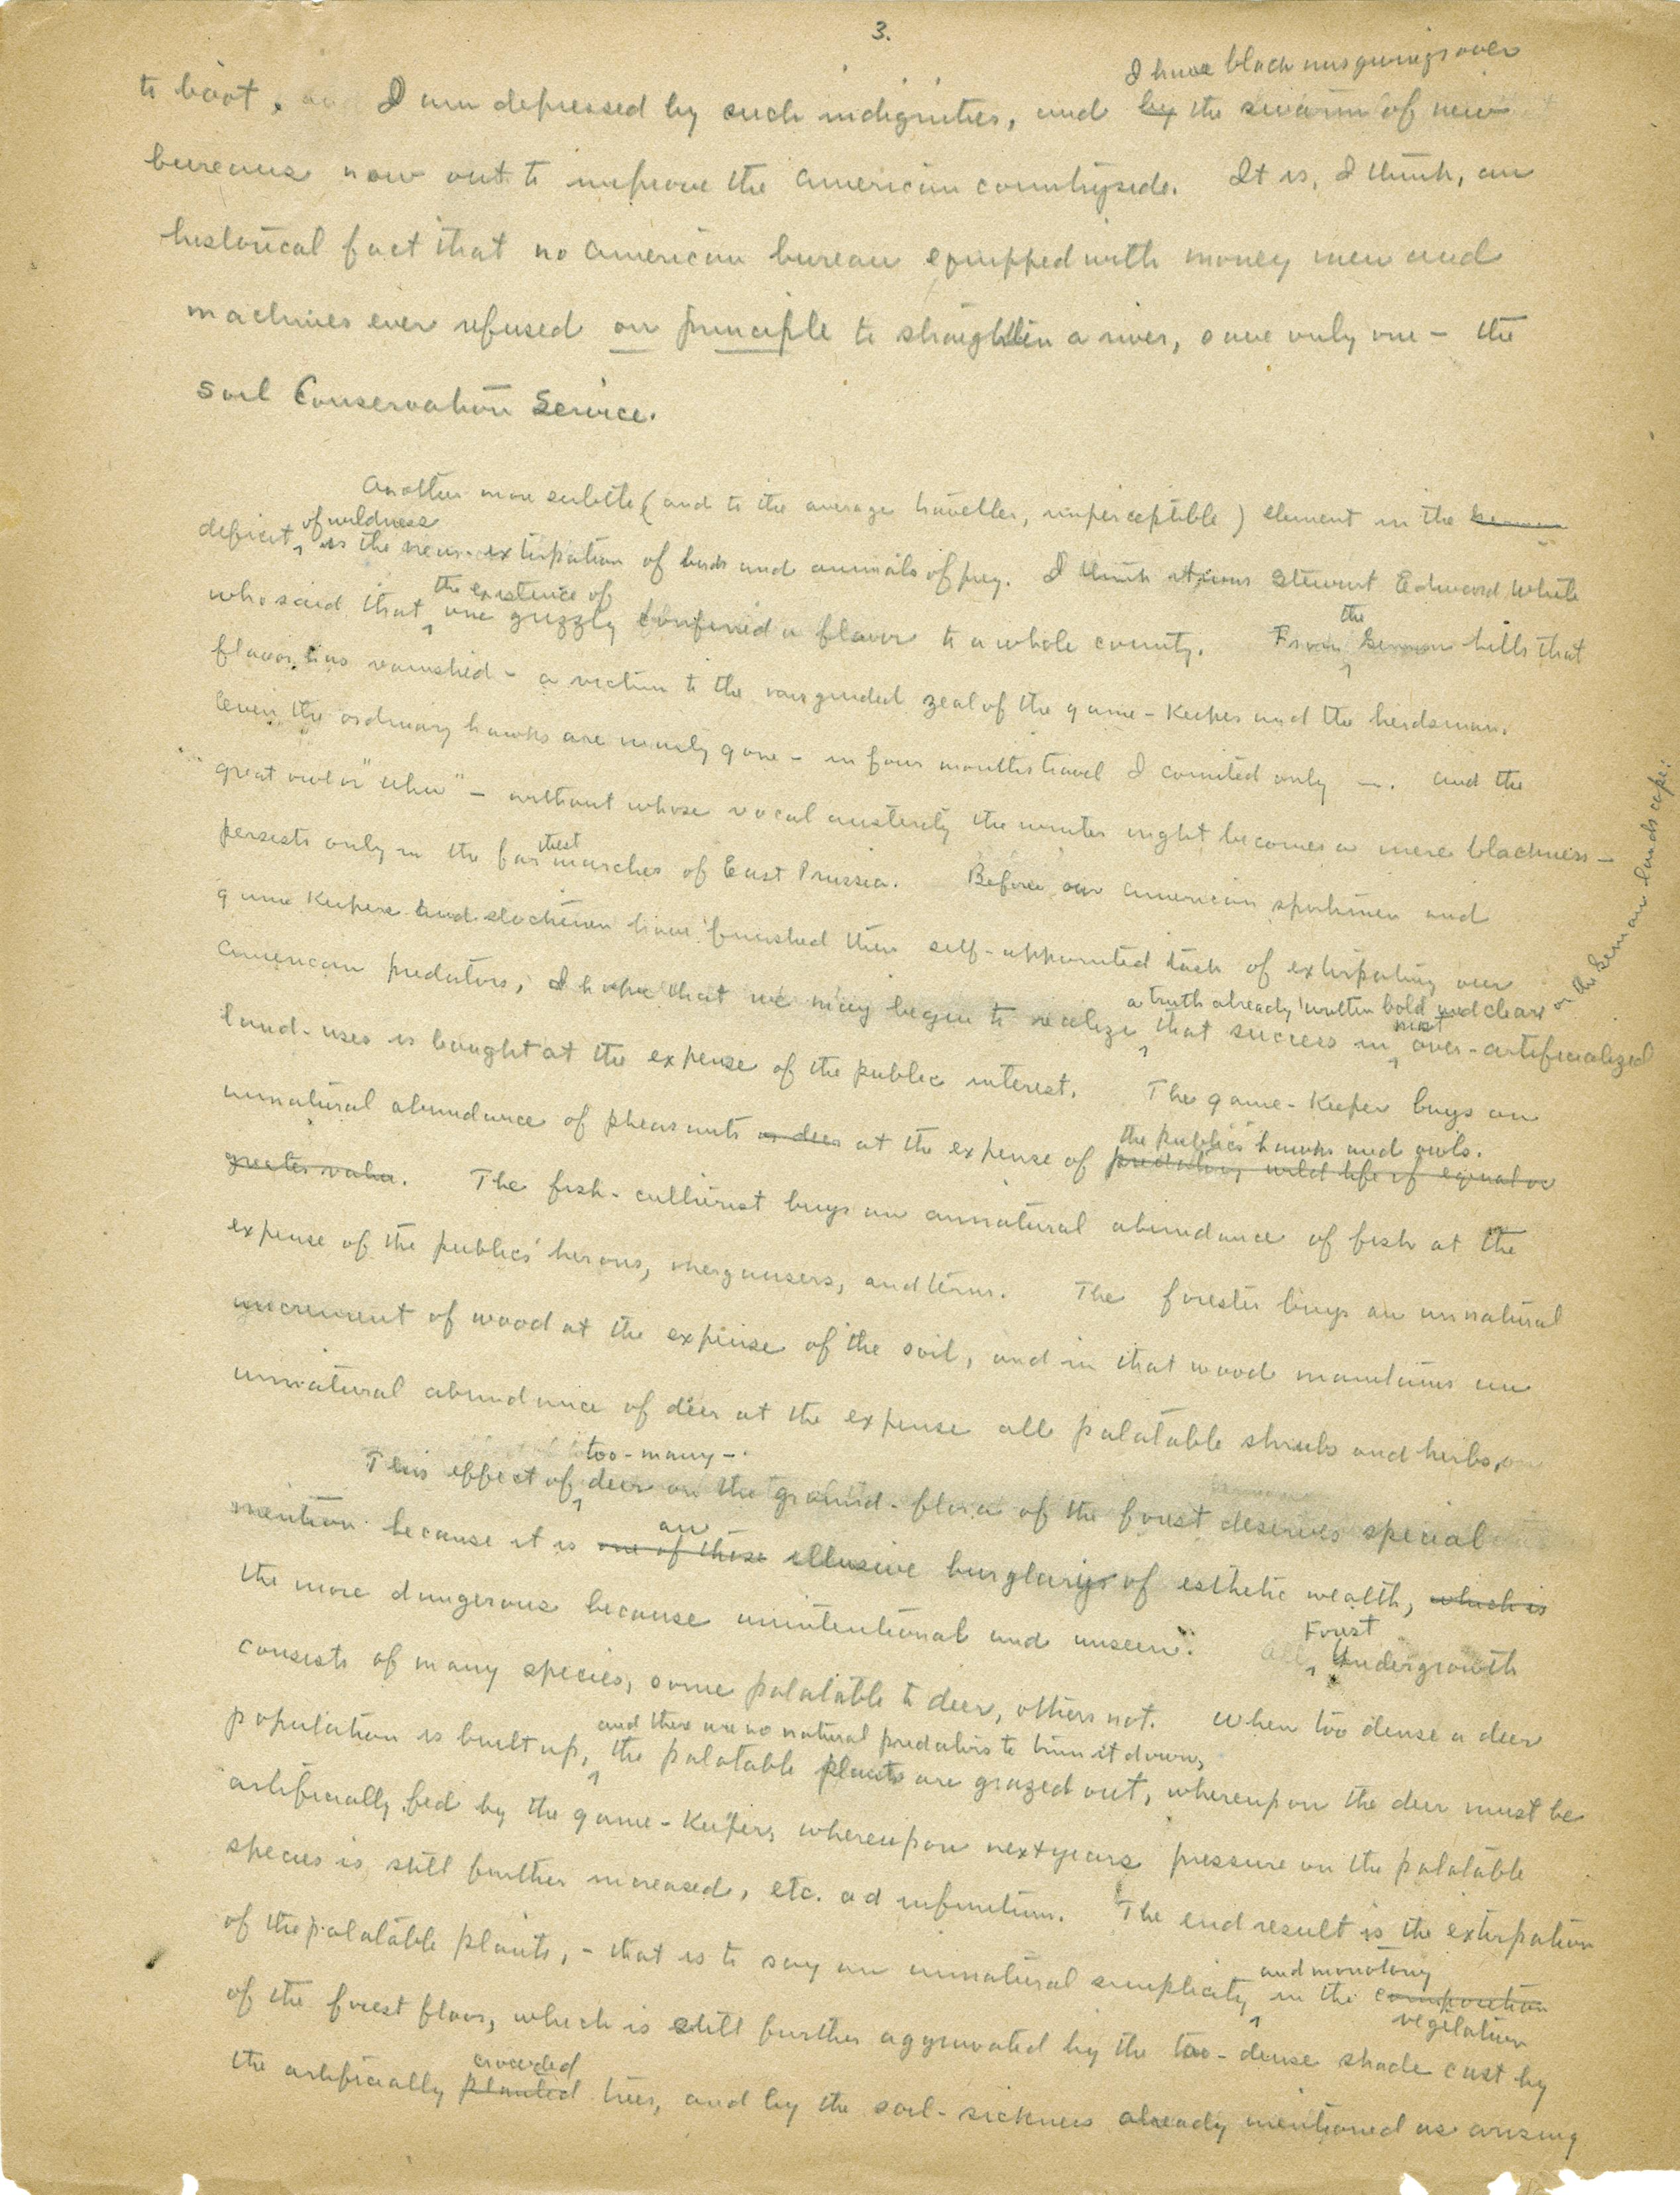 3.
I have black misgivings over
to boot. I am depressed by such indignities, and by the swarm of new
bureaus now out to improve the American countryside. It is, I think, an
historical fact that no American bureau equipped with money men and
machines ever refused on principle to straighten a river, save only one – the
Soil Conservation Service.
Another more subtle (and to the average traveller, imperceptible) element in the German
of wildness
deficit, is the near-extirpation of birds and animals of prey. I think it was Stewart Edward White
the existence of
who said that one grizzly confined a flavor to a whole county. From the German hills that
flavor has vanished – a victim to the misguided zeal of the game-keeper and the herdsman.
Even the ordinary hawks are nearly gone – in four months travel I counted only —. And the
great owl or "uhu" – without whose vocal austerity the winter night becomes a mere blackness –
persists only in the farthest marches of East Prussia. Before our American sportsmen and
game keepers and stockmen have finished their self-appointed task of extirpating our
American predators, I hope that we may begin to realize a truth already written bold and clear on the German landscape: that success in most over-artificialized
land-uses is bought at the expense of the public interest. The game-keeper buys an
unnatural abundance of pheasants or deer at the expense of the public's hawks and owls.
predatory wild life of equal or
greater value. The fish-culturist buys an unnatural abundance of fish at the
expense of the public's herons, mergansers, and terns. The forester buys an unnatural
increment of wood at the expense of the soil, and in that wood maintains an
unnatural abundance of deer at the expense all palatable shrubs and herbs.
too-many-
This effect of deer on the ground-flora of the forest deserves special
an
mention because it is one of those illusive burglarys of esthetic wealth, which is
the more dangerous because unintentional and unseen. Forest Undergrowth
consists of many species, some palatable to deer, others not. When too dense a deer
and there are no natural predators to trim it down,
population is built up, the palatable plants are grazed out, whereupon the deer must be
artificially fed by the game-keeper, whereupon next years pressure on the palatable
species is still further increased, etc. ad infinitum. The end result is the extirpation
of the palatable plants, – that is to say an unnatural simplicity and monotony in the composition vegetation
of the forest floor, which is still further aggravated by the too-dense shade cast by
crowded
the artificially planted trees, and by the soil-sickness already mentioned as arising